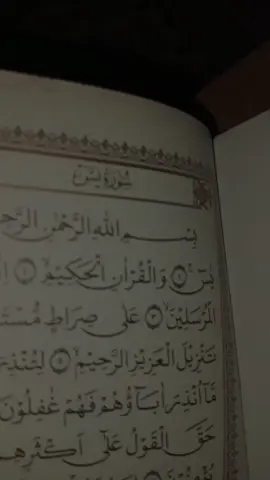 سُورَةُ يٰسٓ
بِسْمِ اللّٰهِ الرَّحْمٰنِ
يٰسٓ ۚ ۝١ وَالْقُرْاٰنِ الْحَكِيْمِۙ ۝٢
الْمُرْسَلِيْنَۙ ۝٣ عَلٰى صِرَاطٍ
تَنْزِيْلَ الْعَزِيْزِ الرَّحِيْمِۙ ۝٥
مَّآ اُنْذِرَ اٰبَاۤؤُهُمْ فَهُمْ غٰفِلُوْنَ
حَقَّ الْقَوْلُ عَلٰٓى اَكْثَرِهِمْ